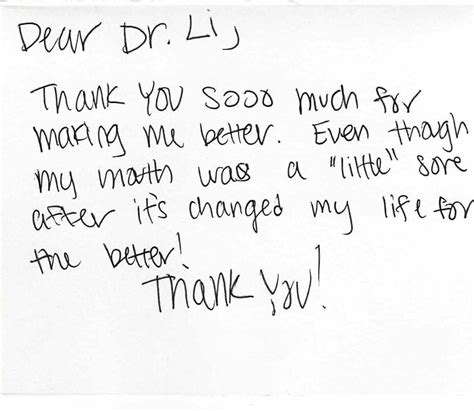 Dear Dr. Li,
Thank you sooo much for
making me better. Even though
my mouth was a "little" sore
after it's changed my life for
the better!
Thank you!